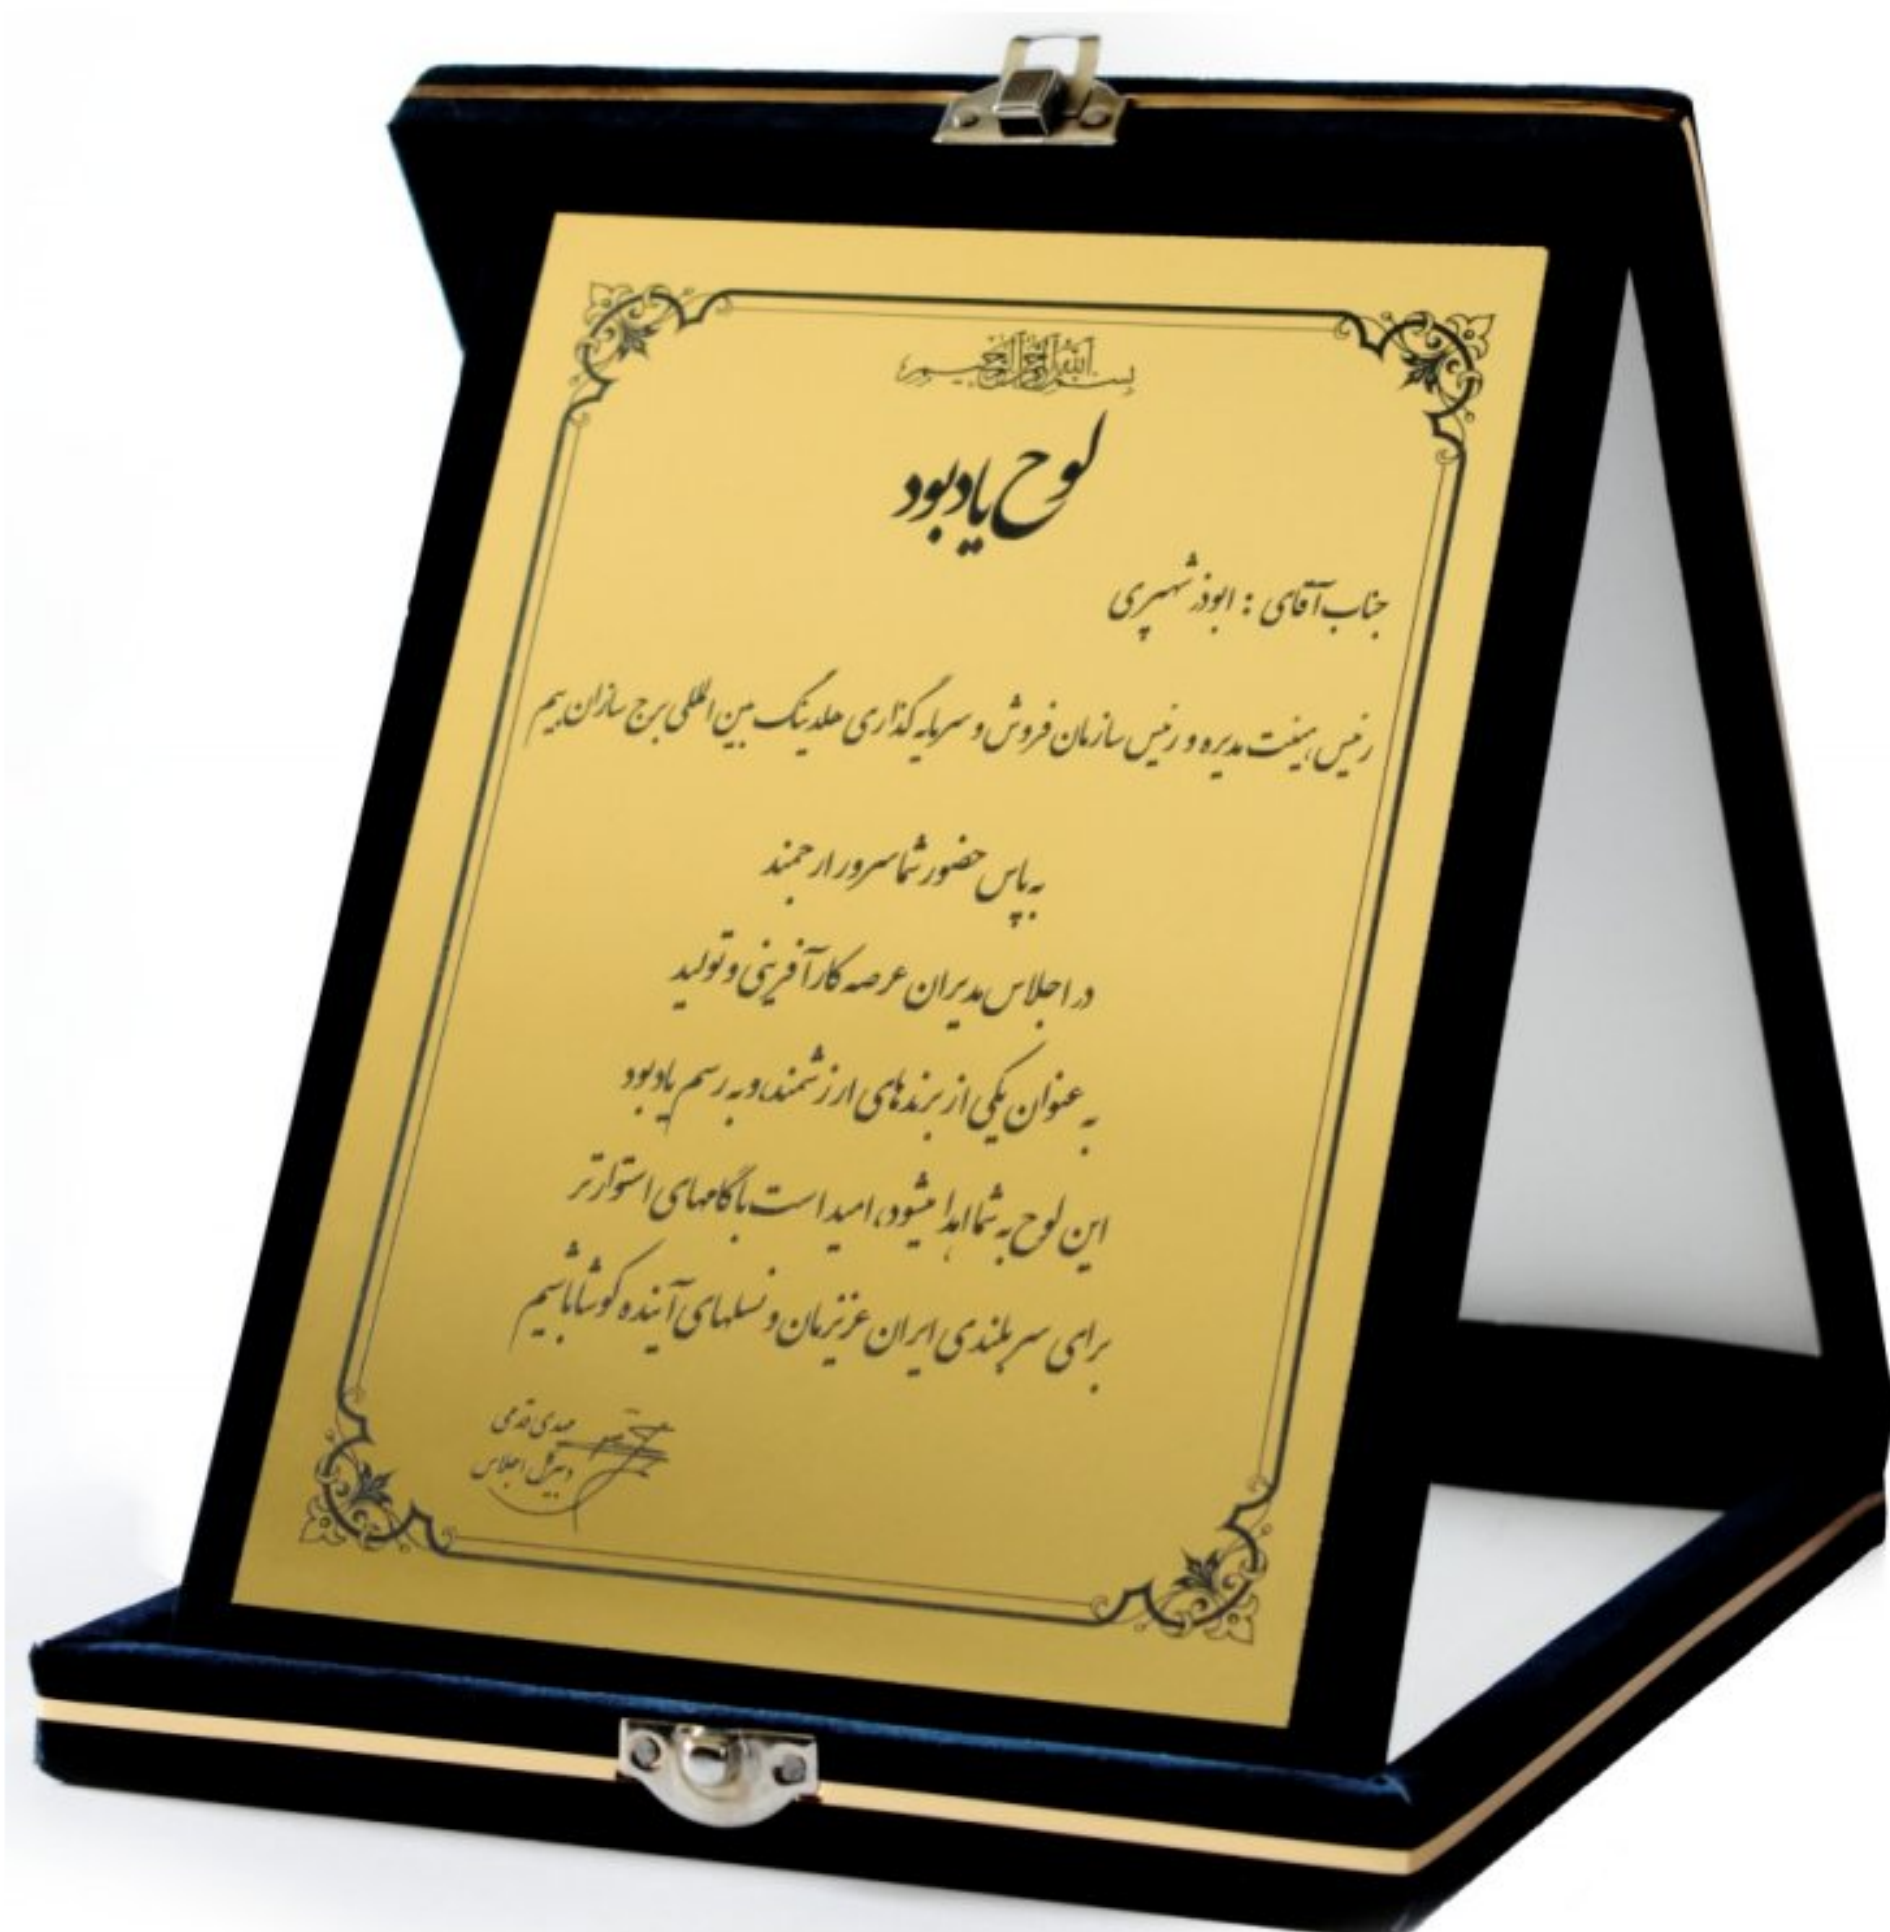 بسم الله الرحمن الرحیم
لوح یادبود
جناب آقای : ابوذر شهپری
رئیس هیئت مدیره و رئیس سازمان فروش و سرمایه گذاری هلدینگ بین المللی برج سازان بیم
به پاس حضور شما سرور ارجمند
در اجلاس مدیران عرصه کارآفرینی و تولید
به عنوان یکی از برندهای ارزشمند، و به رسم یادبود
این لوح به شما اهدا میشود، امید است با گامهای استوارتر
برای سربلندی ایران عزیزمان و نسلهای آینده کوشا باشیم
مهدی
دبیرکل اجلاس